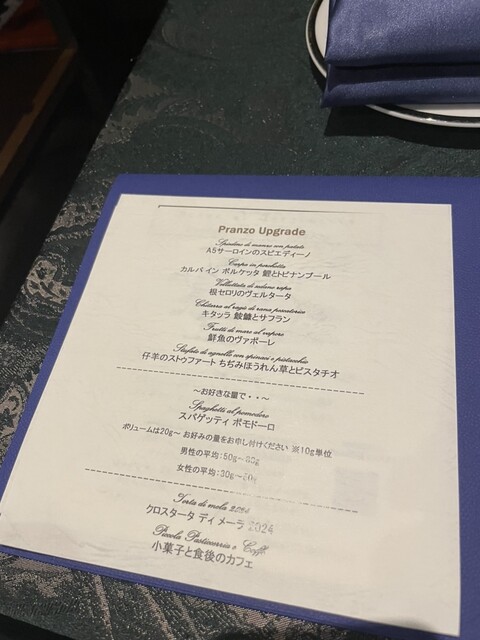 Pranzo Upgrade
Spiedino di manzo con patate
A5サーロインのスピエディーノ
Carpa in porchetta
カルパ イン ポルケッタ 鯉とトピナンブール
Vellutata di sedano rapa
根セロリのヴェルタータ
Chitarra al ragù di rana pescatrice
キタッラ 鮟鱇とサフラン
Frutti di mare al vapore
鮮魚のヴァポーレ
Stufato di agnello con spinaci e pistacchio
仔羊のストゥファート ちぢみほうれん草とピスタチオ
～お好きな量で・・～
Spaghetti al pomodoro
スパゲッティ ポモドーロ
ボリュームは20g～ お好みの量をお申し付けください ※10g単位
男性の平均:50g～80g
女性の平均:30g～50g
Torta di mela 2024
クロスタータ ディ メーラ 2024
Piccola Pasticceria e Caffè
小菓子と食後のカフェ